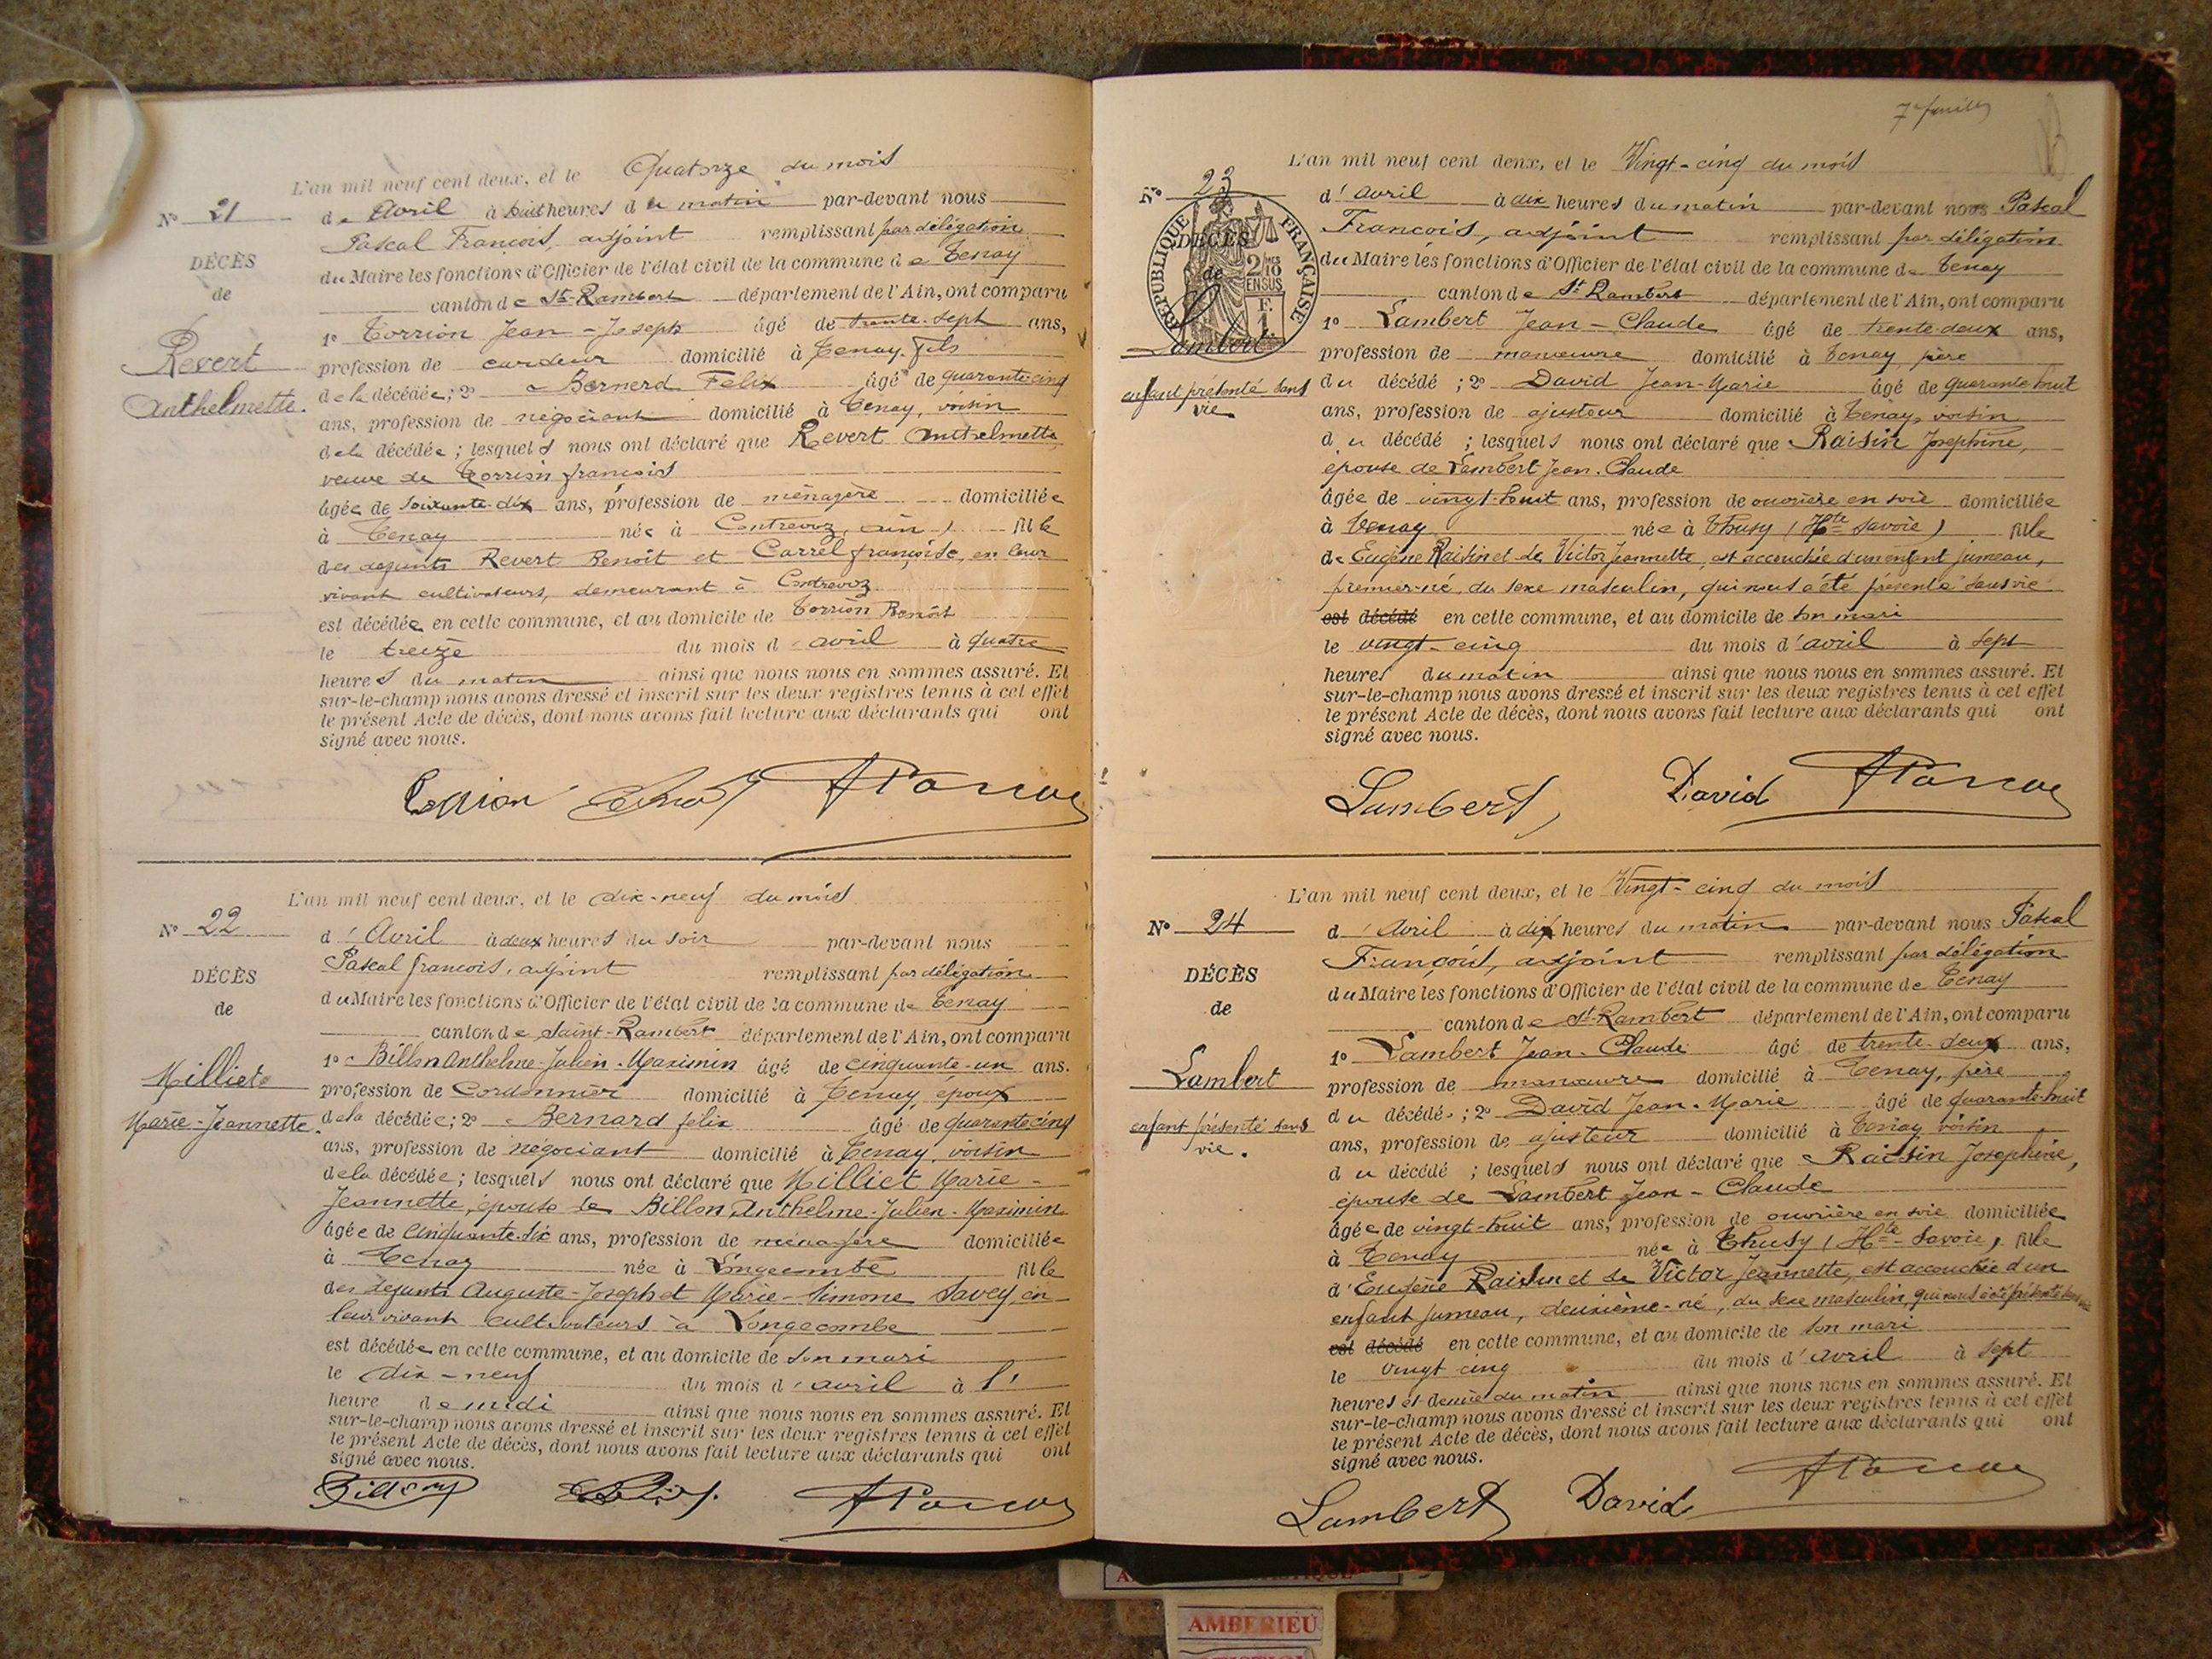 L'an mil neuf cent deux, et le Quatorze du mois
N° 21
d'Avril à huit heures du matin par-devant nous
Pascal François, adjoint remplissant par délégation
DÉCÈS
de
Revert
Anthelmette.
du Maire les fonctions d'Officier de l'état civil de la commune de Tenay
canton de St-Rambert département de l'Ain, ont comparu
1° Torrion Jean-Joseph âgé de trente-sept ans,
profession de cardeur domicilié à Tenay, fils
de la décédée; 2° Bernard Felix âgé de quarante cinq
ans, profession de négociant domicilié à Tenay, voisin
de la décédée; lesquels nous ont déclaré que Revert Anthelmette
veuve de Torrion françois
âgée de soixante-dix ans, profession de ménagère domiciliée
à Tenay née à Contrevoz, (Ain) fille
des defunts Revert Benoît et Carrel françoise, en leur
vivant cultivateurs, demeurant à Contrevoz
est décédée en cette commune, et au domicile de Torrion Benoît
le treize du mois d'avril à quatre
heures du matin ainsi que nous nous en sommes assuré. Et
sur-le-champ nous avons dressé et inscrit sur les deux registres tenus à cet effet
le présent Acte de décès, dont nous avons fait lecture aux déclarants qui ont
signé avec nous.
Torrion
L'an mil neuf cent deux, et le dix-neuf du mois
N° 22
d'Avril à deux heures du soir par-devant nous
Pascal françois, adjoint remplissant par délégation
DÉCÈS
de
Milliet
Marie-Jeannette.
du Maire les fonctions d'Officier de l'état civil de la commune de Tenay
canton de Saint-Rambert département de l'Ain, ont comparu
1° Billon Anthelme-Julien-Maximin âgé de cinquante-un ans.
profession de Cordonnier domicilié à Tenay, époux
de la décédée; 2° Bernard félix âgé de quarante cinq
ans, profession de négociant domicilié à Tenay, voisin
de la décédée; lesquels nous ont déclaré que Milliet Marie-
Jeannette, épouse de Billon Anthelme-Julien-Maximin
âgée de Cinquante-six ans, profession de ménagère domiciliée
à Tenay née à Longecombe fille
des defunts Auguste-Joseph et Marie-Simone Savey, en
leur vivant cultivateurs à Longecombe
est décédée en cette commune, et au domicile de son mari
le dix-neuf du mois d'avril à l'
heure de midi ainsi que nous nous en sommes assuré. Et
sur-le-champ nous avons dressé et inscrit sur les deux registres tenus à cet effet
le présent Acte de décès, dont nous avons fait lecture aux déclarants qui ont
signé avec nous.
Billon
7e feuillet
L'an mil neuf cent deux, et le Vingt-cinq du mois
N° 23
RÉPUBLIQUE FRANÇAISE
DÉCÈS
de
Lambert
enfant présenté sans
vie
d'avril à dix heures du matin par-devant nous Pascal
François, adjoint remplissant par délégation
du Maire les fonctions d'Officier de l'état civil de la commune de Tenay
canton de St Rambert département de l'Ain, ont comparu
1° Lambert Jean-Claude âgé de trente-deux ans,
profession de manœuvre domicilié à Tenay, père
du décédé; 2° David Jean-Marie âgé de quarante-huit
ans, profession de ajusteur domicilié à Tenay, voisin
du décédé; lesquels nous ont déclaré que Raisin Josephine,
épouse de Lambert Jean-Claude
âgée de vingt-huit ans, profession de ouvrière en soie domiciliée
à Tenay née à Thusy (Hte Savoie) fille
de Eugène Raisin et de Victor Jeannette, est accouchée d'un enfant jumeau,
premier-né, du sexe masculin, qui nous a été présenté sans vie
est décédé en cette commune, et au domicile de son mari
le vingt-cinq du mois d'avril à sept
heures du matin ainsi que nous nous en sommes assuré. Et
sur-le-champ nous avons dressé et inscrit sur les deux registres tenus à cet effet
le présent Acte de décès, dont nous avons fait lecture aux déclarants qui ont
signé avec nous.
Lambert David
L'an mil neuf cent deux, et le Vingt-cinq du mois
N° 24
d'Avril à dix heures du matin par-devant nous Pascal
François, adjoint remplissant par délégation
DÉCÈS
de
Lambert
enfant présenté sans
vie.
du Maire les fonctions d'Officier de l'état civil de la commune de Tenay
canton de St-Rambert département de l'Ain, ont comparu
1° Lambert Jean-Claude âgé de trente-deux ans,
profession de manœuvre domicilié à Tenay, père
du décédé; 2° David Jean-Marie âgé de quarante-huit
ans, profession de ajusteur domicilié à Tenay voisin
du décédé; lesquels nous ont déclaré que Raisin Josephine,
épouse de Lambert Jean-Claude
âgée de vingt-huit ans, profession de ouvrière en soie domiciliée
à Tenay née à Thusy (Hte-Savoie), fille
d'Eugène Raisin et de Victor Jeannette, est accouchée d'un
enfant jumeau, deuxième-né, du sexe masculin, qui nous a été présenté sans vie
est décédé en cette commune, et au domicile de son mari
le Vingt cinq du mois d'avril à sept
heures et demie du matin ainsi que nous nous en sommes assuré. Et
sur-le-champ nous avons dressé et inscrit sur les deux registres tenus à cet effet
le présent Acte de décès, dont nous avons fait lecture aux déclarants qui ont
signé avec nous.
Lambert David
AMBERIEU